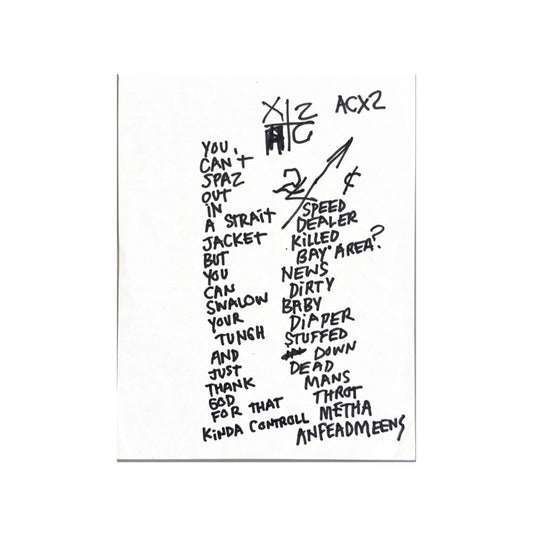 X 2
A C
ACX2
2
¢
YOU,
CAN't
SPAZ
OUT
IN
A STRAIT
JACKET
BUT
YOU
CAN
SWALOW
YOUR
TUNGH
AND
JUST
THANK
GOD
FOR THAT
KINDA CONTROLL
SPEED
DEALER
KILLED
BAY AREA?
NEWS
DIRTY
BABY
DIAPER
STUFFED
DOWN
DEAD
MANS
THROT
METHA
ANFEADMEENS